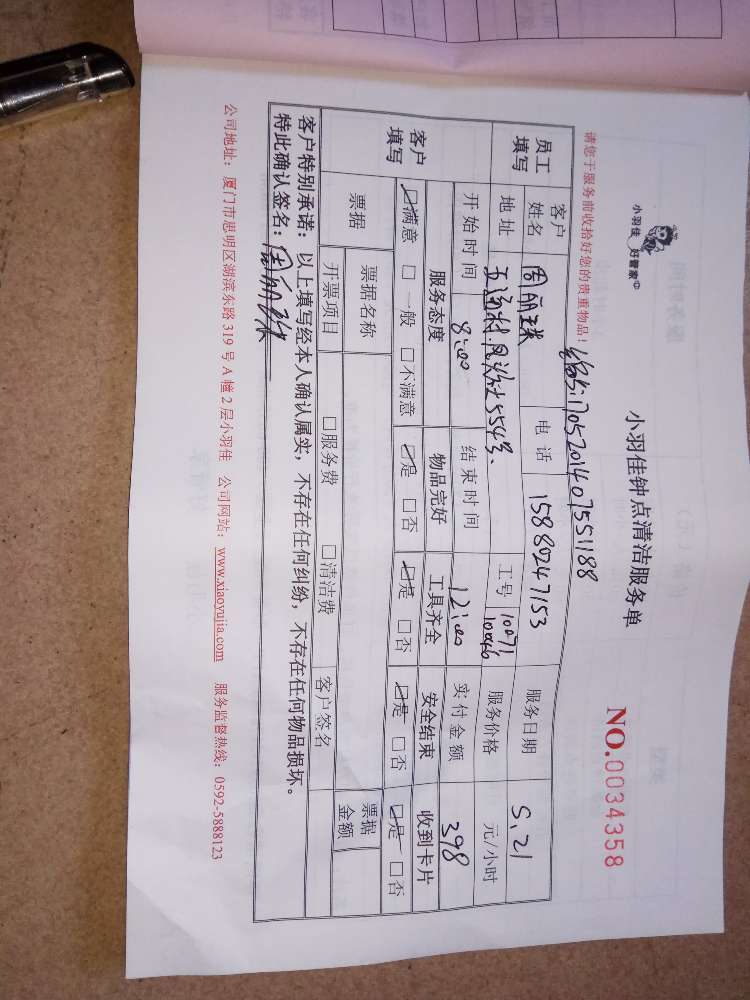 小羽佳 好管家
小羽佳钟点清洁服务单
NO.0034358
请您于服务前收拾好您的贵重物品！
编号1705201407551188
员工填写 客户姓名 周丽珠 电话 15880247153 服务日期 5.21
地址 五通村凤头社554号 工号 10071 10046 服务价格 元/小时
开始时间 8:00 结束时间 12:00 实付金额 398
客户填写 服务态度 物品完好 工具齐全 安全结束 收到卡片
☑满意 □一般 □不满意 ☑是 □否 ☑是 □否 ☑是 □否 ☑是 □否
票据 票据名称 票据金额
开票项目 □服务费 □清洁费 客户签名
客户特别承诺：以上填写经本人确认属实，不存在任何纠纷，不存在任何物品损坏。
特此确认签名：周丽珠
公司地址：厦门市思明区湖滨东路319号A幢2层小羽佳 公司网站：www.xiaoyujia.com 服务监督热线：0592-5888123